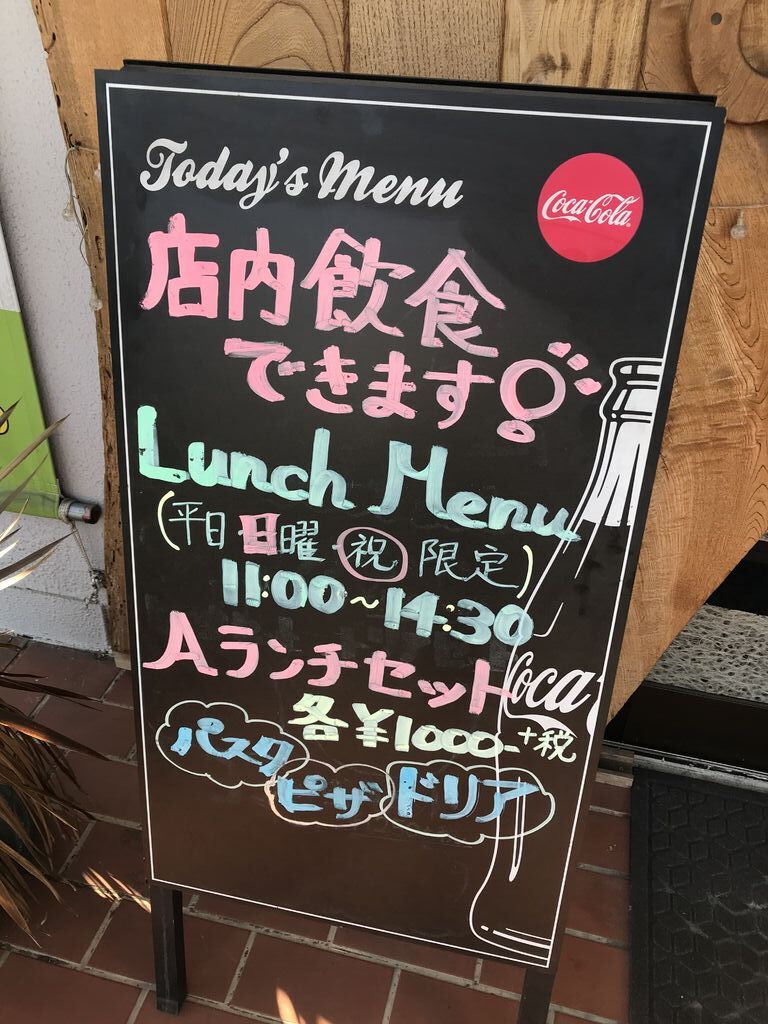 Today's Menu
Coca-Cola
店内飲食
できます!
Lunch Menu
(平日 日曜 祝 限定)
11:00~14:30
Aランチセット
各¥1000-+税
パスタ ピザ ドリア
Coca